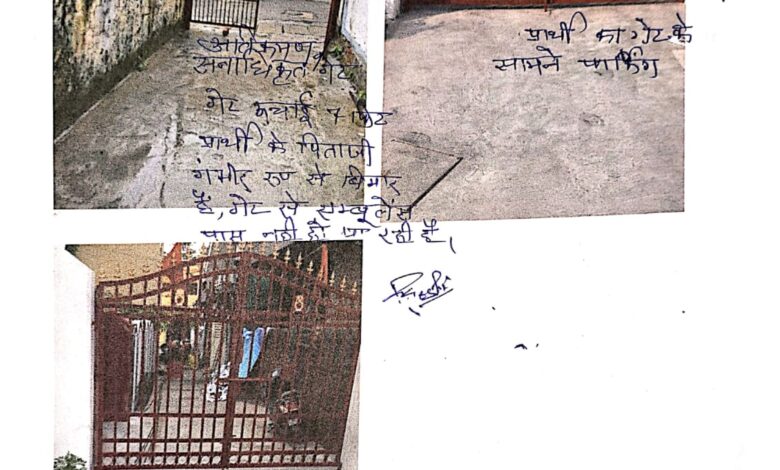 अतिक्रमण,
अनाधिकृत गेट
गेट ऊचाई 7 फिट
प्रार्थी के पिताजी
गंभीर रूप से बिमार
है, गेट से एम्बूलेंस
पास नही हो पा रही है।
प्रार्थी का गेट के
सामने पार्किंग